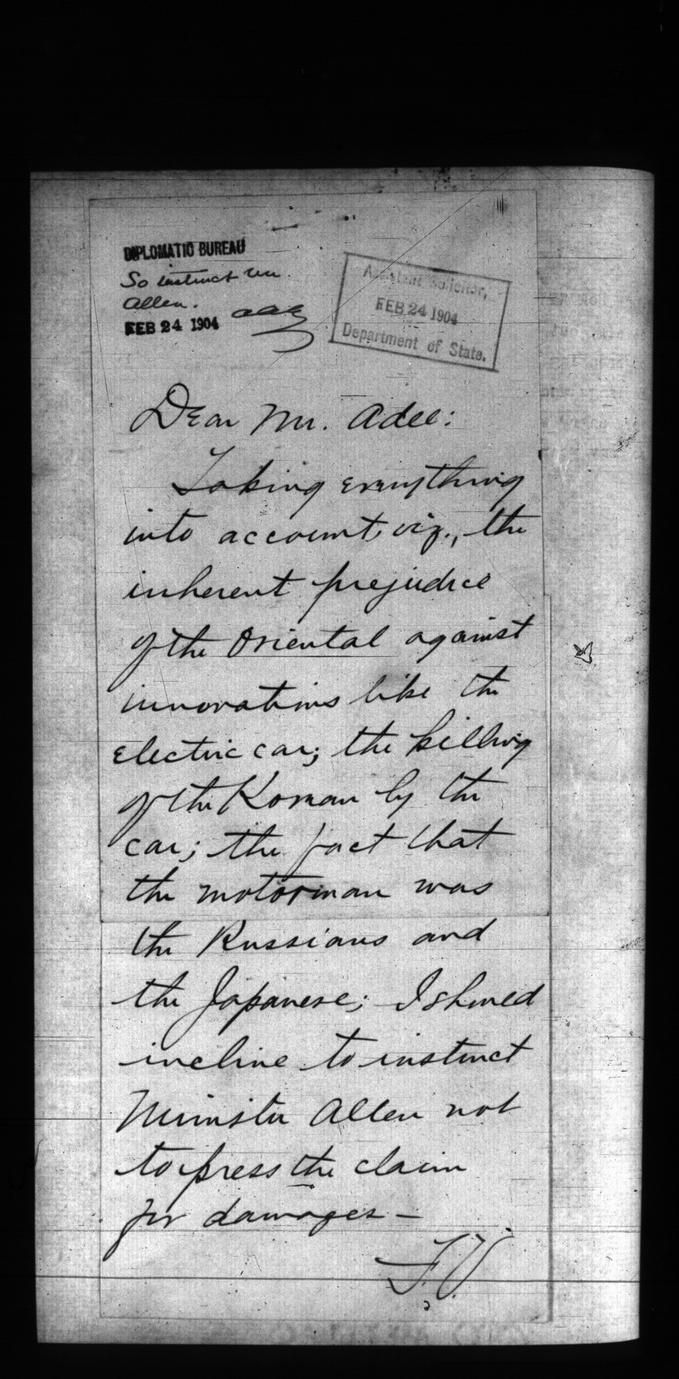 DIPLOMATIC BUREAU
So instruct Mr.
Allen.
FEB 24 1904 aaa
Assistant Solicitor,
FEB 24 1904
Department of State.
Dear Mr. Adee:
Taking everything
into account, viz., the
inherent prejudice
of the Oriental against
innovations like the
electric car; the killing
of the Korean by the
car; the fact that
the motorman was
the Russians and
the Japanese; I should
incline to instruct
Minister Allen not
to press the claim
for damages —
F.V.